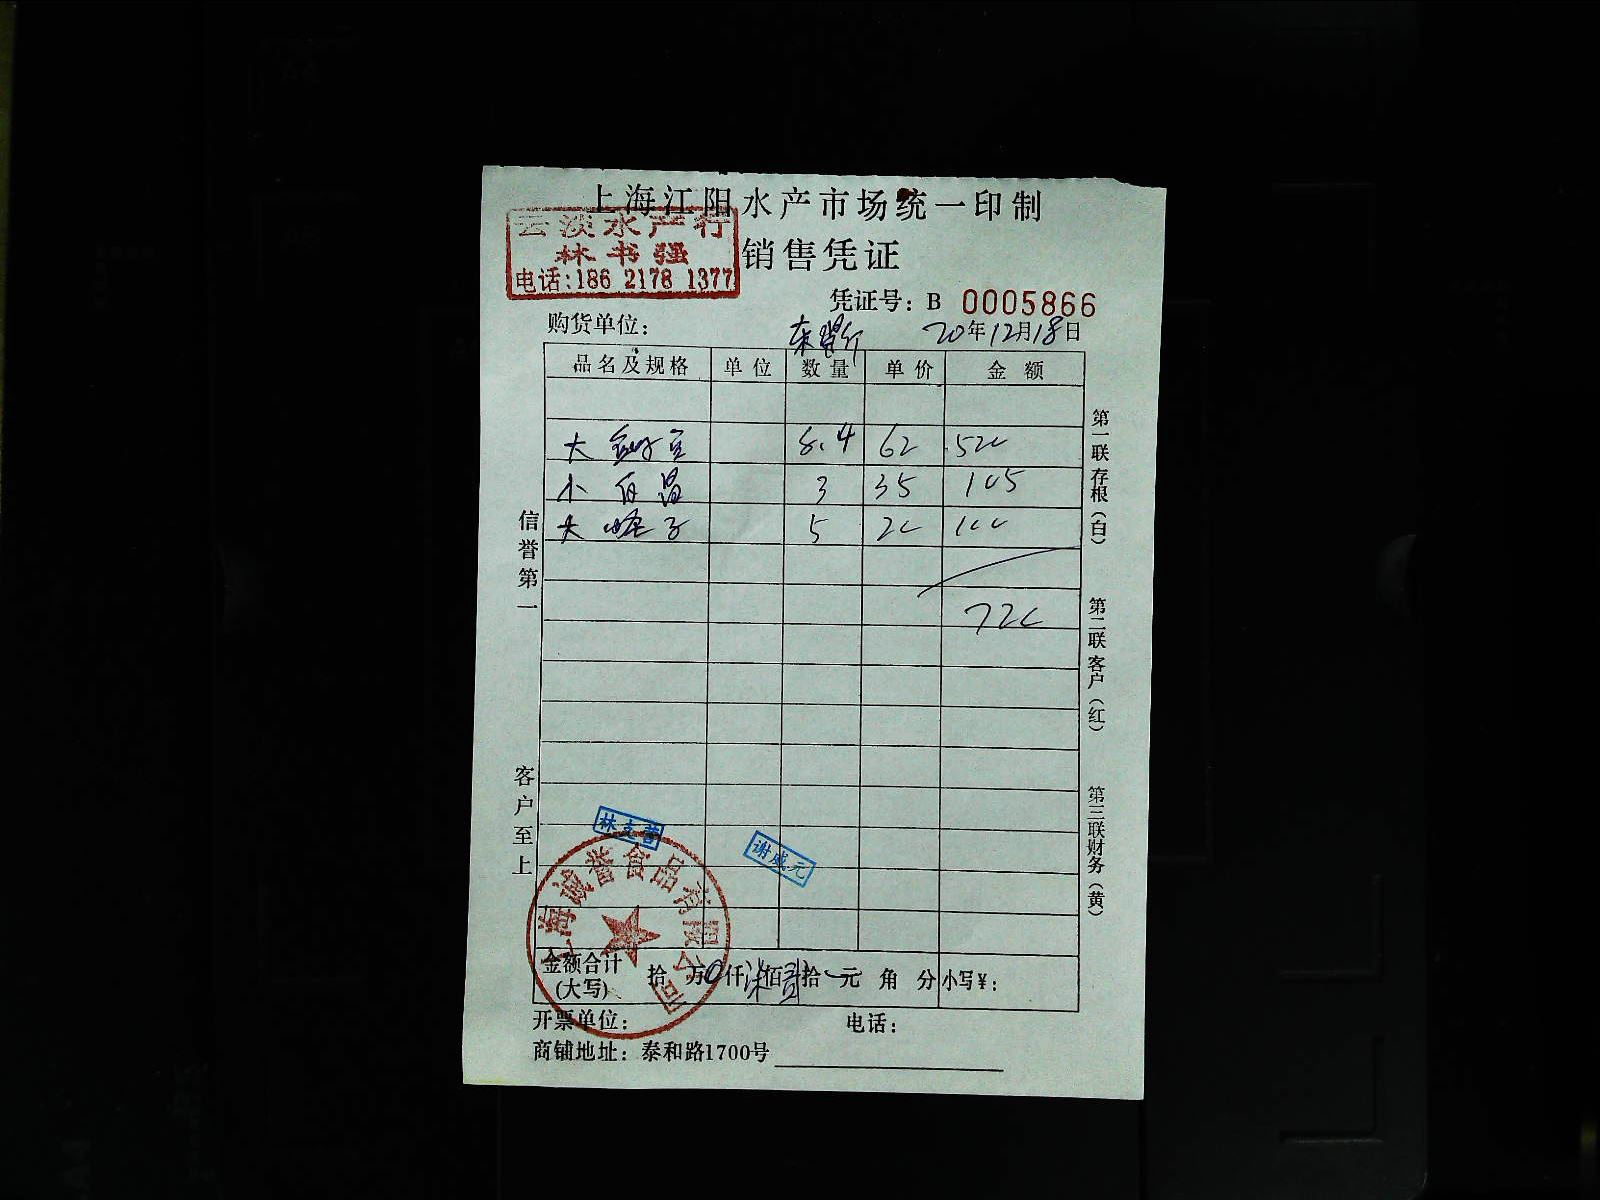 上海江阳水产市场统一印制
云淡水产行
林书强
电话:186 2178 1377
销售凭证
凭证号: B 0005866
购货单位:
20年12月18日
品名及规格 单位 数量 单价 金额
大 8.4 62 520
小 3 35 105
大 子 5 20 100
720
信誉第一
客户至上
第一联存根(白)
第二联客户(红)
第三联财务(黄)
谢威元
上海诚誉食品有限公司
金额合计(大写) 拾 万0仟柒佰贰拾 元 角 分 小写¥:
开票单位: 电话:
商铺地址: 泰和路1700号